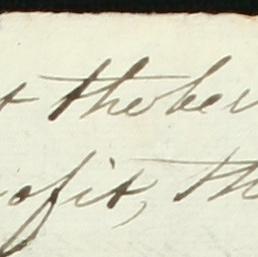 the ber
ofit, th